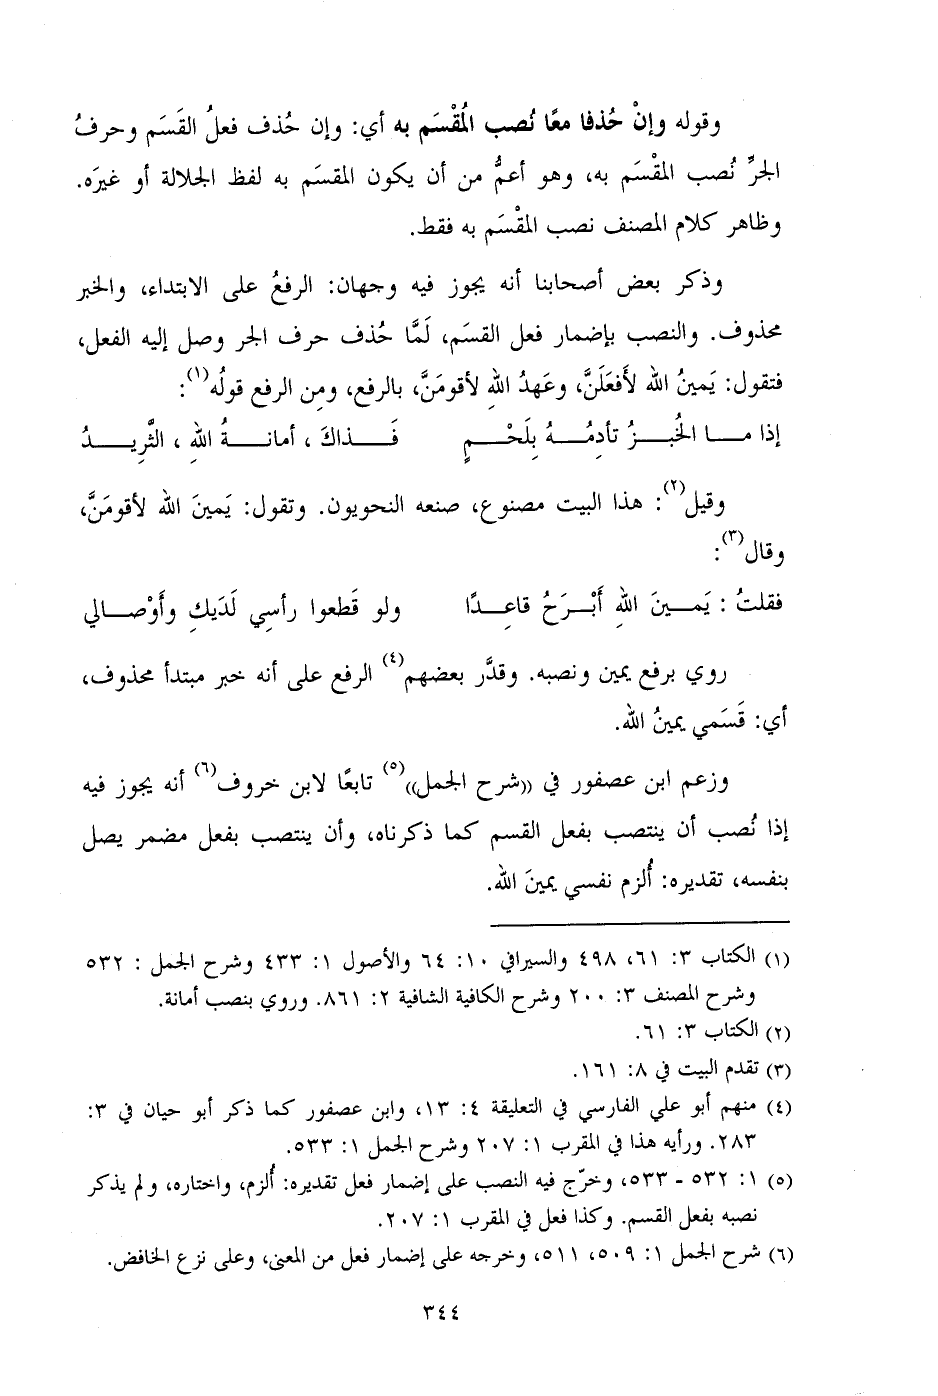 وقوله وإنْ حُذفا معًا نُصب المُقْسَم به أي: وإن حُذف فعلُ القَسَم وحرفُ
الجرِّ نُصب المقْسَم به، وهو أعمُّ من أن يكون المقسَم به لفظ الجلالة أو غيرَه.
وظاهر كلام المصنف نصب المقْسَم به فقط.
وذكر بعض أصحابنا أنه يجوز فيه وجهان: الرفعُ على الابتداء، والخبر
محذوف. والنصب بإضمار فعل القسَم، لَمَّا حُذف حرف الجر وصل إليه الفعل،
فتقول: يَمينُ اللهِ لأَفعَلَنَّ، وعَهدُ اللهِ لأقومَنَّ، بالرفع، ومِن الرفع قولُه(١):
إذا مـــا الخُبـــزُ تأدِمُـــهُ بِلَحْـــمٍ فَـــذاكَ ، أمانـــةُ اللهِ ، الثَّرِيـــدُ
وقيل(٢): هذا البيت مصنوع، صنعه النحويون. وتقول: يَمينَ اللهِ لأقومَنَّ،
وقال(٣):
فقلتُ : يَمـــينَ اللهِ أَبْـــرَحُ قاعِـــدًا ولو قَطعوا رأسي لَدَيكِ وأَوْصـــالي
روي برفع يمين ونصبه. وقدَّر بعضهم(٤) الرفع على أنه خبر مبتدأ محذوف،
أي: قَسَمي يمينُ الله.
وزعم ابن عصفور في ((شرح الجمل))(٥) تابعًا لابن خروف(٦) أنه يجوز فيه
إذا نُصب أن ينتصب بفعل القسم كما ذكرناه، وأن ينتصب بفعل مضمر يصل
بنفسه، تقديره: أُلزم نفسي يمينَ الله.
(١) الكتاب ٣: ٦١، ٤٩٨ والسيرافي ١٠: ٦٤ والأصول ١: ٤٣٣ وشرح الجمل : ٥٣٢
وشرح المصنف ٣: ٢٠٠ وشرح الكافية الشافية ٢: ٨٦١. وروي بنصب أمانة.
(٢) الكتاب ٣: ٦١.
(٣) تقدم البيت في ٨: ١٦١.
(٤) منهم أبو علي الفارسي في التعليقة ٤: ١٣، وابن عصفور كما ذكر أبو حيان في ٣:
٢٨٣. ورأيه هذا في المقرب ١: ٢٠٧ وشرح الجمل ١: ٥٣٣.
(٥) ١: ٥٣٢ - ٥٣٣، وخرّج فيه النصب على إضمار فعل تقديره: أُلزم، واختاره، ولم يذكر
نصبه بفعل القسم. وكذا فعل في المقرب ١: ٢٠٧.
(٦) شرح الجمل ١: ٥٠٩، ٥١١، وخرجه على إضمار فعل من المعنى، وعلى نزع الخافض.
٣٤٤